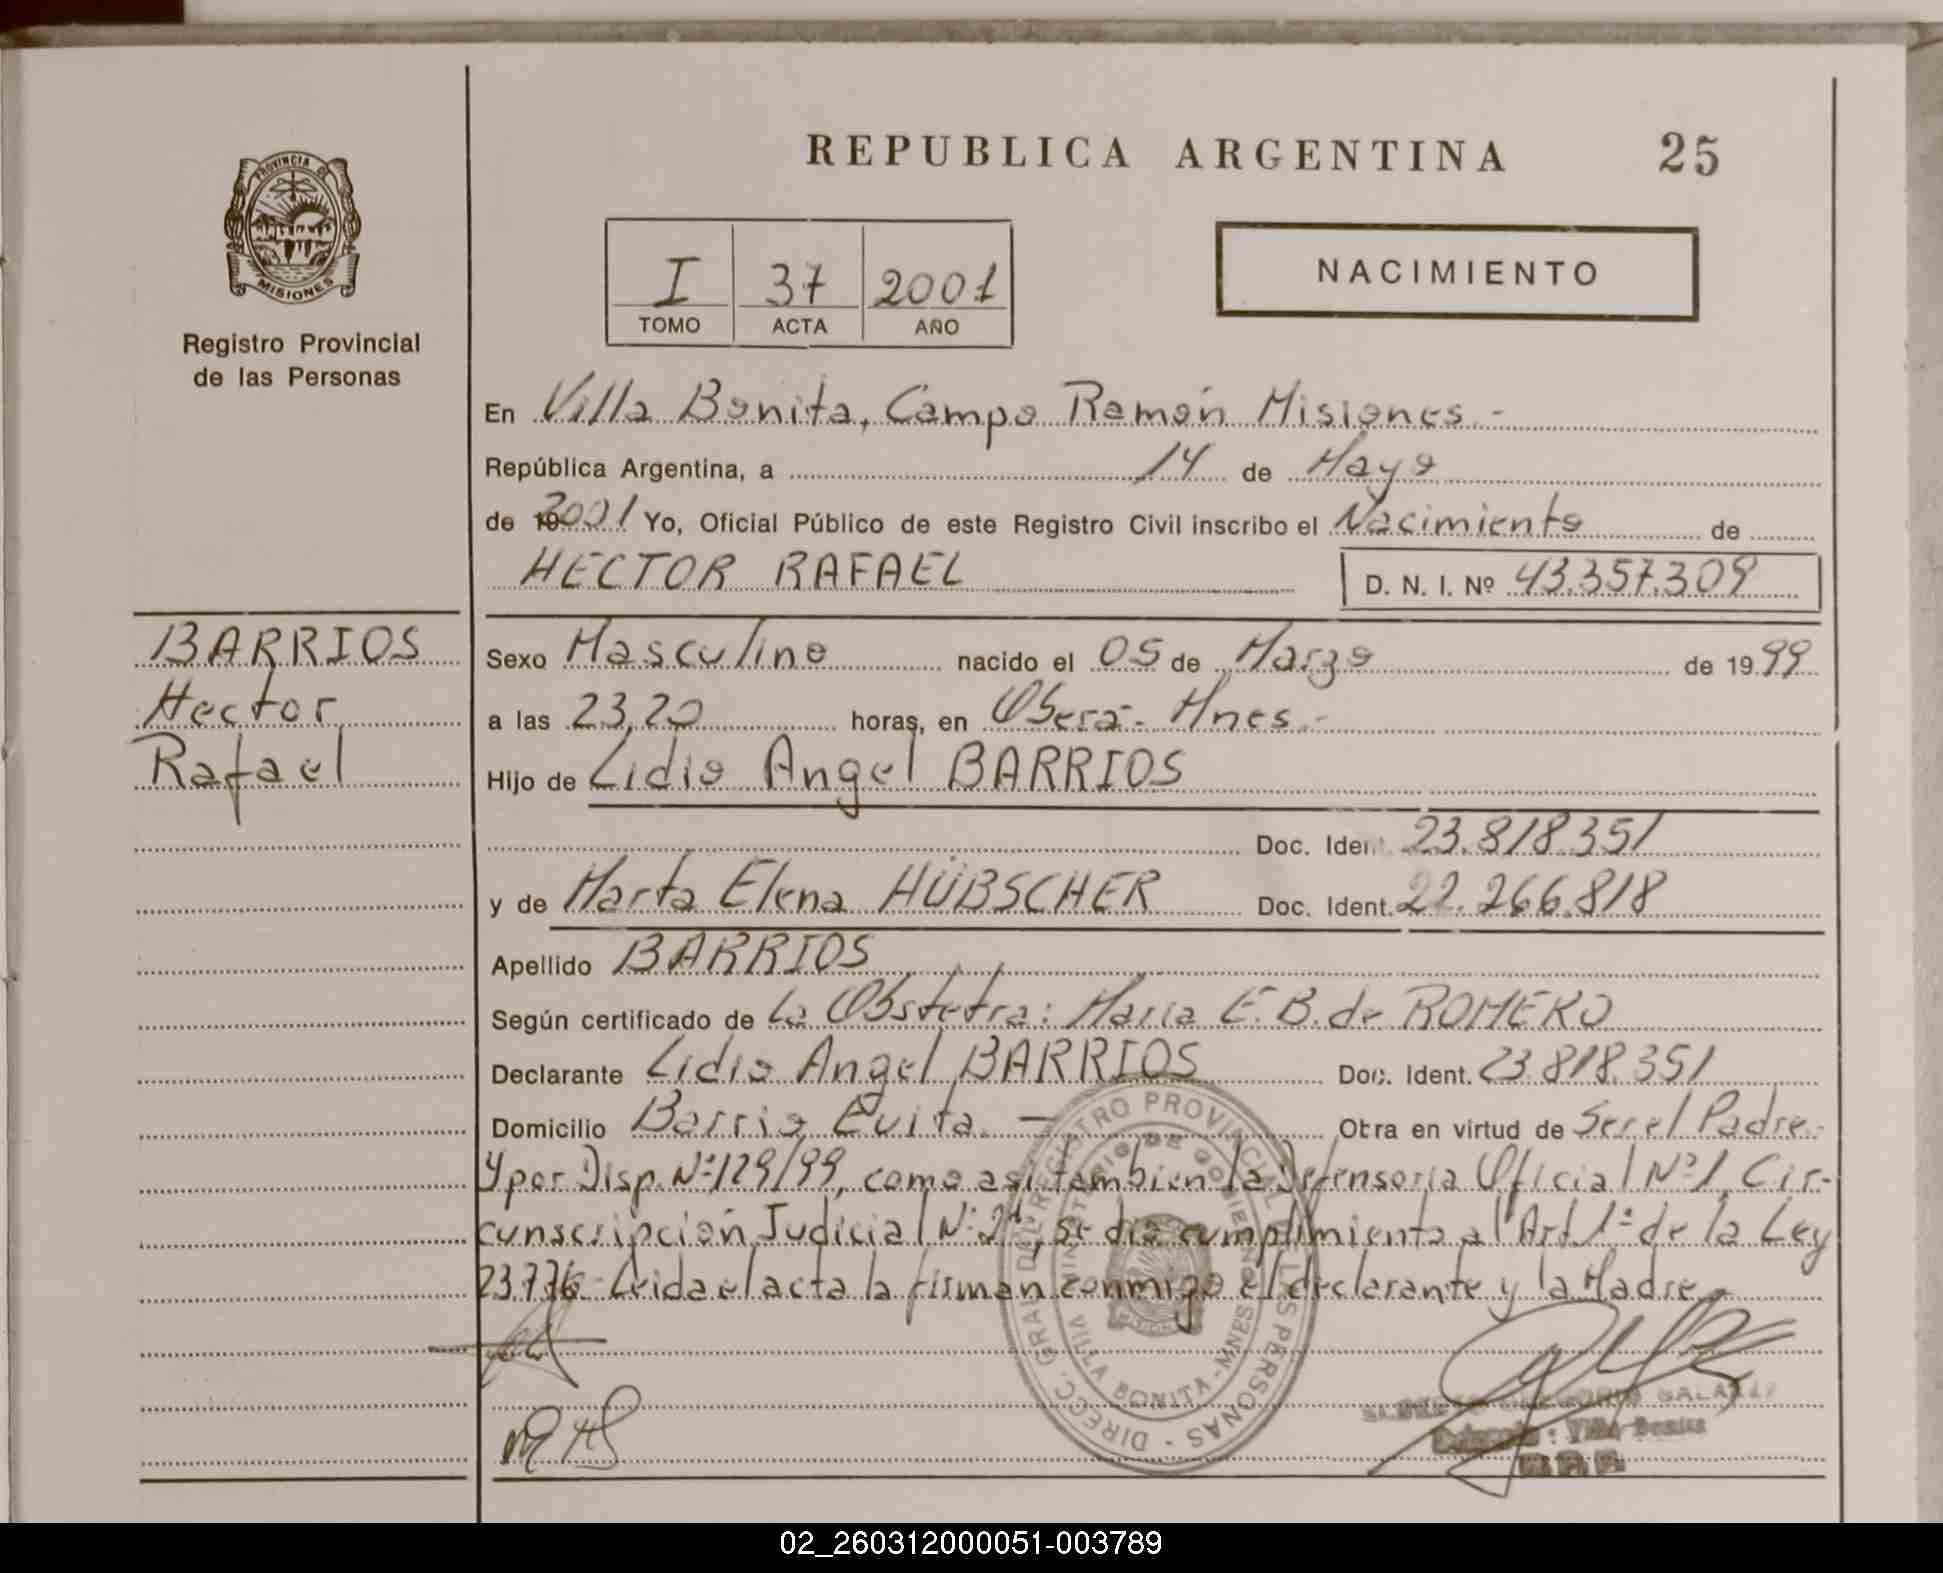 REPUBLICA ARGENTINA 25
PROVINCIA DE
MISIONES
Registro Provincial
de las Personas
I 37 2001
TOMO ACTA AÑO
NACIMIENTO
En Villa Bonita, Campo Ramón Misiones.-
República Argentina, a 14 de Mayo
de 2001 Yo, Oficial Público de este Registro Civil inscribo el Nacimiento de
HECTOR RAFAEL D. N. I. Nº 43.357.309
BARRIOS
Hector
Rafael
Sexo Masculino nacido el 05 de Marzo de 1999
a las 23,20 horas, en Oberá- Mnes.-
Hijo de Lidio Angel BARRIOS
Doc. Ident. 23.818.351
y de Marta Elena HÜBSCHER Doc. Ident. 22.266.818
Apellido BARRIOS
Según certificado de La Obstetra: Maria E. B. de ROMERO
Declarante Lidio Angel BARRIOS Doc. Ident. 23.818.351
Domicilio Barrio Evita.- Obra en virtud de Ser el Padre.-
Y por Disp. Nº 129/99, como asi tambien la Defensoria Oficial Nº 1 Cir-
cunscripción Judicial Nº 2ª, se dio cumplimiento al Art. 1º de la Ley
23.776- Leida el acta la firman conmigo el declarante y la Madre.-
DIRECC. GRAL DEL REGISTRO PROVINCIAL DE LAS PERSONAS
MINISTERIO DE GOBIERNO
VILLA BONITA - MNES
GREGORIO
Villa Bonita
02_260312000051-003789